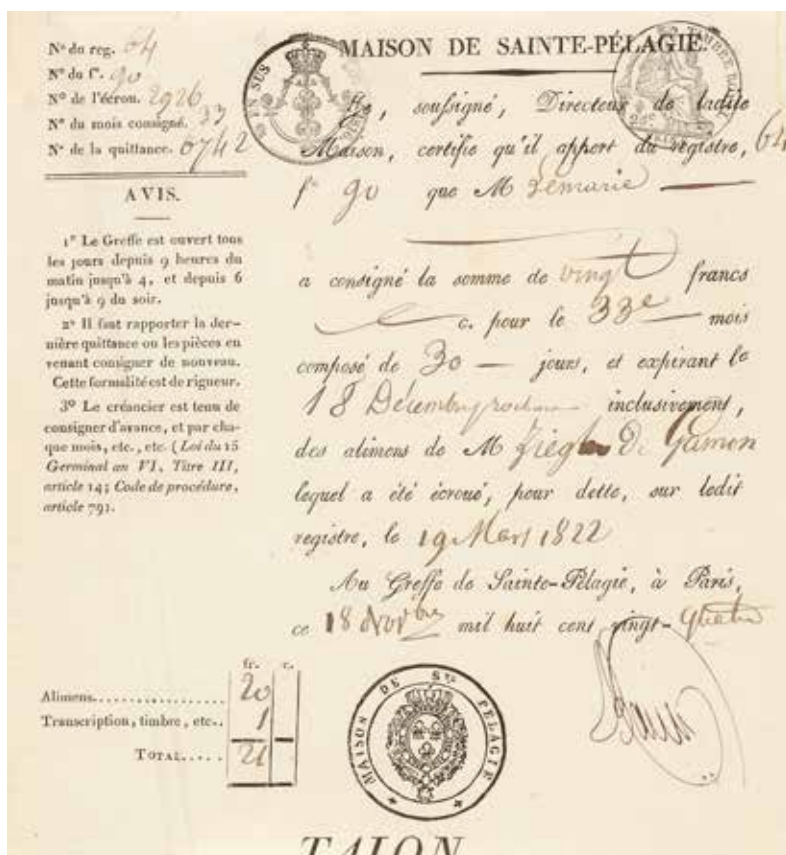 N° du reg. 64
N° du f°. 90
N° de l'écrou. 2926
N° du mois consigné. 33
N° de la quittance. 6742
AVIS.
1° Le Greffe est ouvert tous
les jours depuis 9 heures du
matin jusqu'à 4, et depuis 6
jusqu'à 9 du soir.
2° Il faut rapporter la der-
nière quittance ou les pièces en
venant consigner de nouveau.
Cette formalité est de rigueur.
3° Le créancier est tenu de
consigner d'avance, et par cha-
que mois, etc., etc. (Loi du 15
Germinal an VI, Titre III,
article 14; Code de procédure,
article 791.
MAISON DE SAINTE-PÉLAGIE.
EN SUS
TIMBRE
Je, soussigné, Directeur de ladite
Maison, certifie qu'il appert du registre, 64
f° 90 que M Lemarie
a consigné la somme de vingt francs
c. pour le 33e mois
composé de 30 jours, et expirant le
18 Décembre prochain inclusivement,
des alimens de M Ziegler De Gamon
lequel a été écroué, pour dette, sur ledit
registre, le 19 Mars 1822
Au Greffe de Sainte-Pélagie, à Paris,
ce 18 Novbre mil huit cent vingt-quatre
fr. c.
Alimens.............. 20
Transcription, timbre, etc.. 1
TOTAL..... 21
MAISON DE Ste PELAGIE
TALON